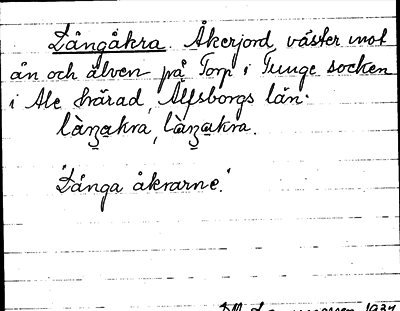 Långåkra. Åkerjord väster mot
ån och älven på Torp i Tunge socken
i Ale härad, Älfsborgs län.
làŋakra, làŋakra.
"Långa åkrarne."
1937